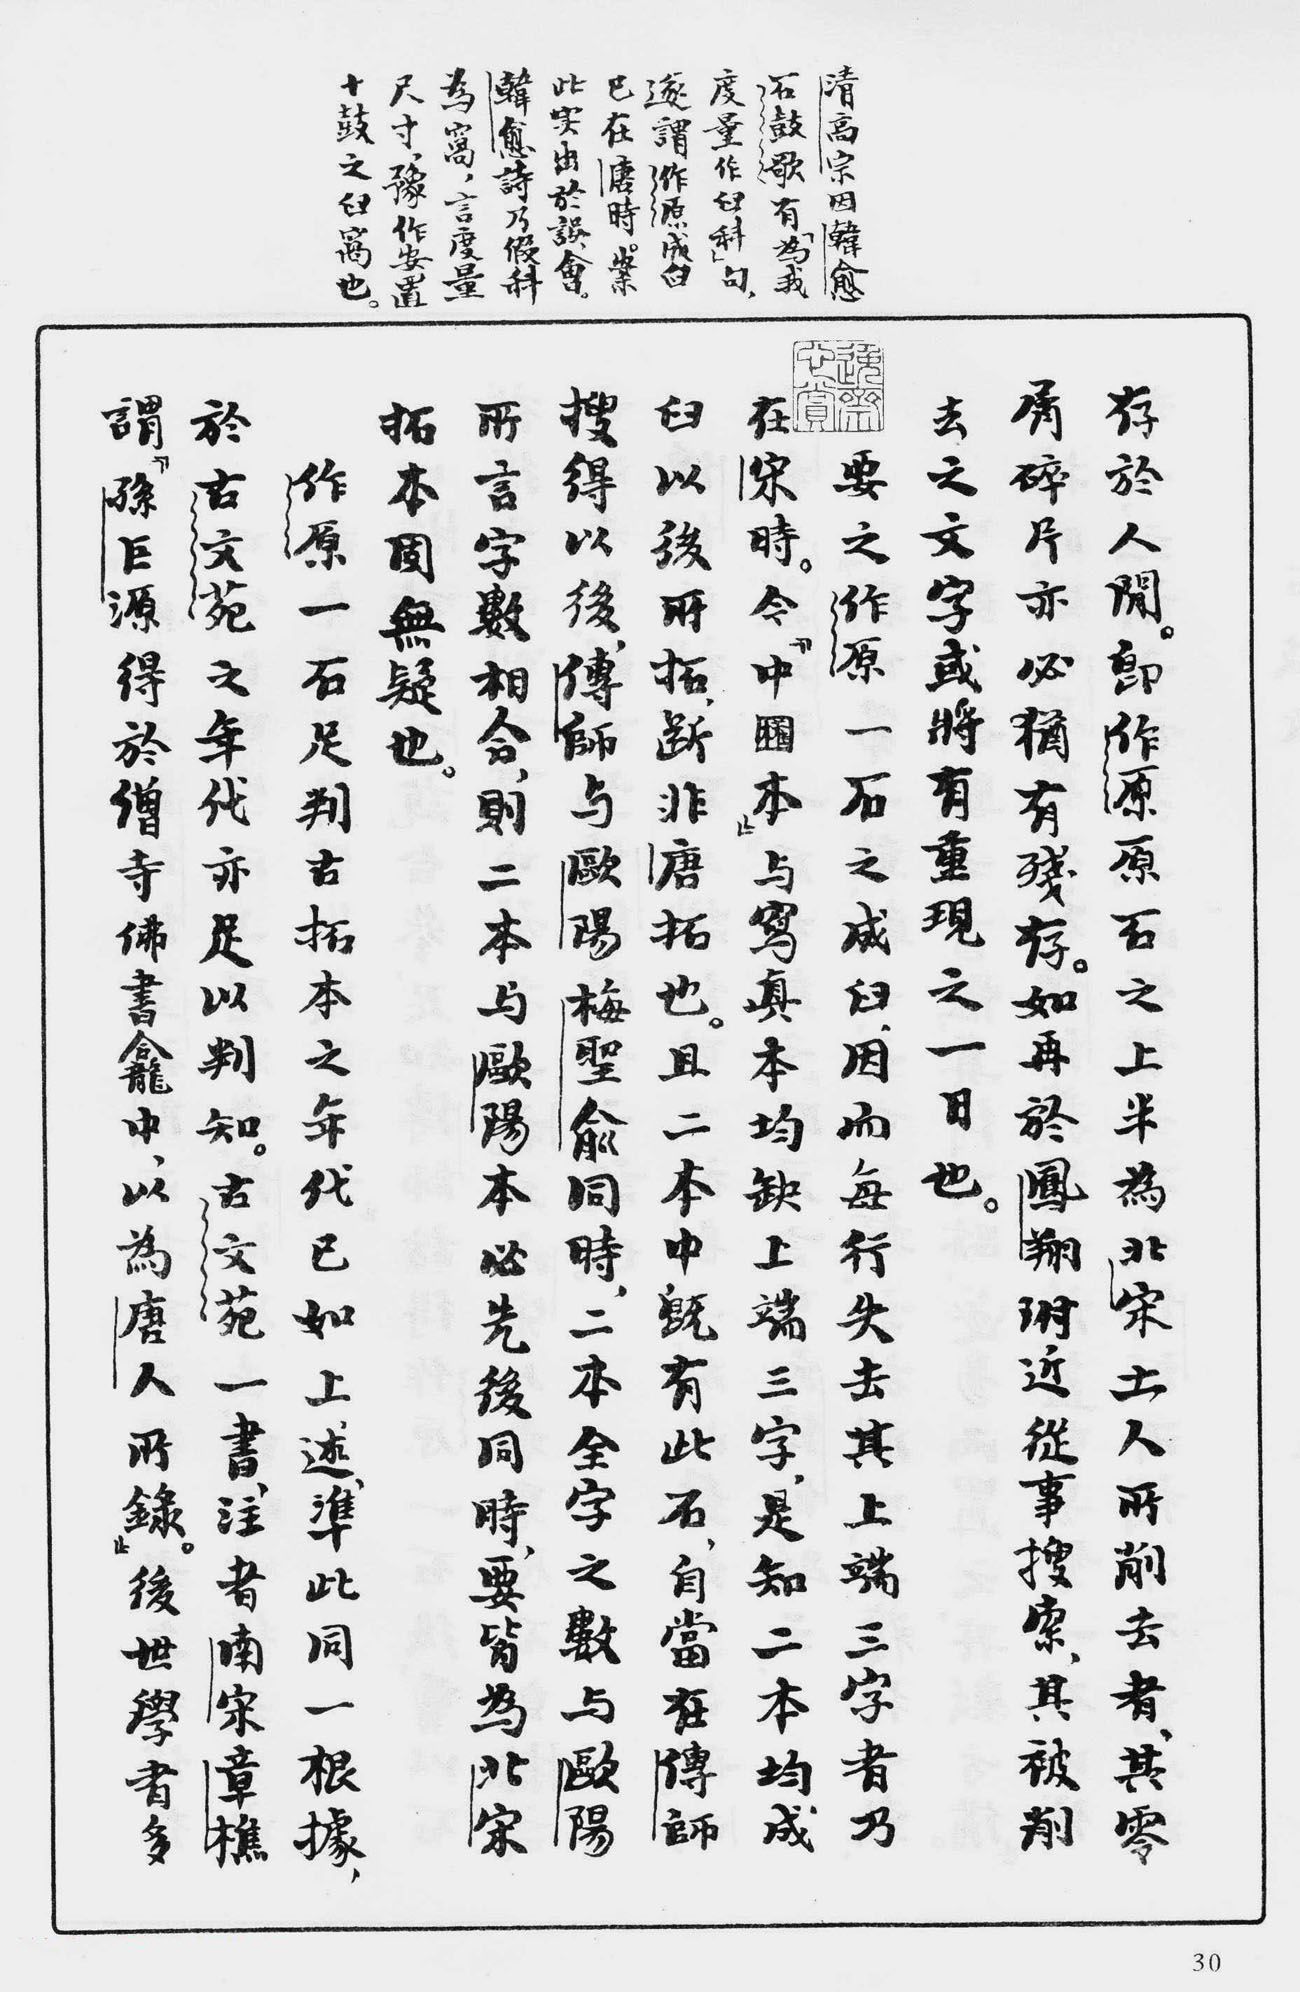 清高宗因韓愈
石鼓歌有「為我
度量作臼科」句，
遂謂作原成臼
已在唐時。案
此实出於誤會。
韓愈詩乃假科
為窩，言度量
尺寸，豫作安置
十鼓之臼窩也。
存於人間。即作原原石之上半為北宋土人所削去者，其零
屑碎片亦必猶有殘存。如再於鳳翔附近從事搜索，其被削
去之文字或將有重現之一日也。
要之作原一石之成臼，因而每行失去其上端三字者乃
在宋時。今「中國本」与寫真本均缺上端三字，是知二本均成
臼以後所拓，斷非唐拓也。且二本中既有此石，自當在傳師
搜得以後，傳師与歐陽梅聖俞同時，二本全字之數与歐陽
所言字數相合，則二本与歐陽本必先後同時，要皆為北宋
拓本固無疑也。
作原一石足判古拓本之年代已如上述，準此同一根據，
於古文苑之年代亦足以判知。古文苑一書，注者南宋章樵
謂「孫巨源得於僧寺佛書龕中，以為唐人所錄。」後世學者多
30